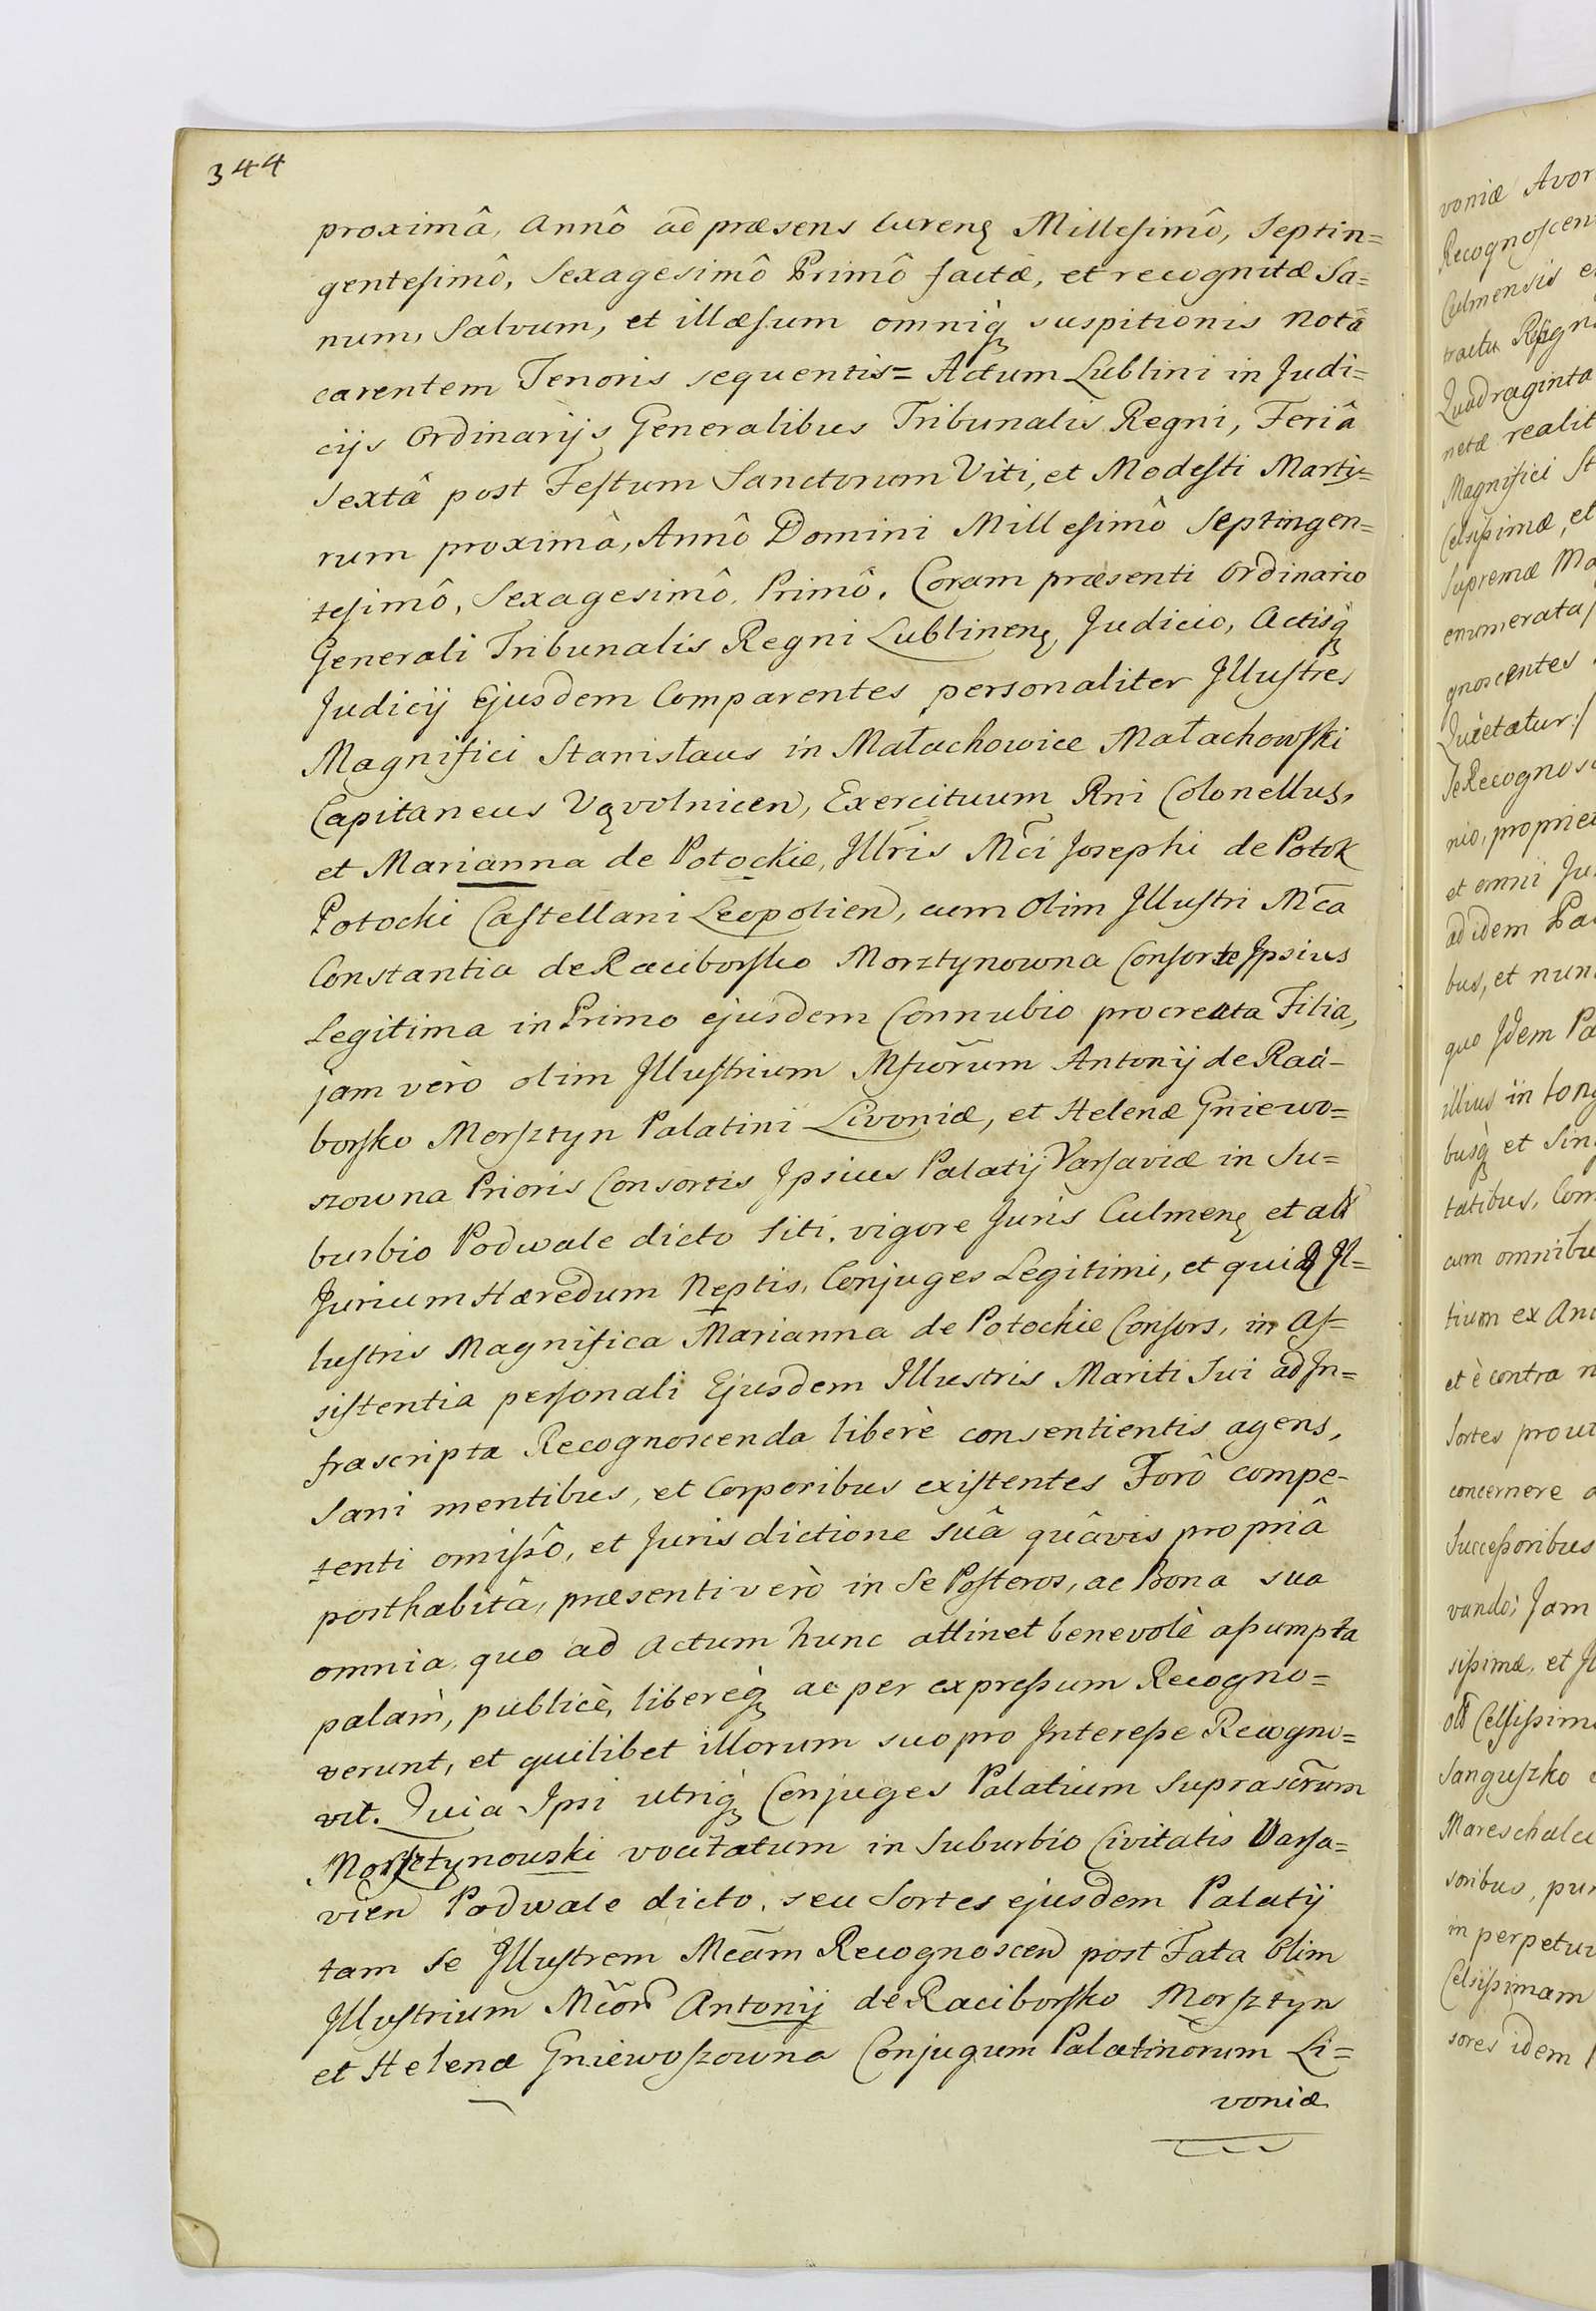 344
proximâ, Annô ad præsens Currenς Millesimô, Septin=
gentesimô, Sexagesimô Primô factæ, et recognitæ Sa=
num, Salvum, et illæsum omniq̀ suspitionis notâ
carentem Tenoris sequentis = Actum Lublini in Judi=
cijs Ordinarijs Generalibus Tribunalis Regni, Feriâ
Sextâ post Festum Sanctorum Viti, et Modesti Marty=
rum proximâ, Annô Domini Millesimô Septingen=
tesimô, Sexagesimô, Primô. Coram præsenti Ordinario
Generali Tribunalis Regni Lublinenς Judicio, Actisq̀
Judicij Ejusdem Comparentes personaliter Illustres
Magnifici Stanisłaus in Małachowice Małachowski
Capitaneus Uςvolnicen, Exercituum Rni Colonellus,
et Marianna de Potockie, Illris Mci Josephi de Potok
Potocki Castellani Leopolien, cum Olim Illustri Mca
Constantia de Raciborsko Morztynowna Consorte Ipsius
Legitima in Primo ejusdem Connubio procreata Filia,
jam verò olim Illustrium Mficorum Antonij de Raci-
borsko Morsztyn Palatini Livoniæ, et Helenæ Gniewo=
szowna Prioris Consortis Ipsius Palatij Varsaviæ in Su=
burbio Podwale dicto siti, vigore Juris Culmenς et ali
Jurium Hæredum Neptis, Conjuges Legitimi, et quid Il=
lustris Magnifica Marianna de Potockie Consors, in As=
sistentia personali Ejusdem Illustris Mariti Sui ad In=
frascripta Recognoscenda liberè consentientis agens,
Sani mentibus, et Corporibus existentes Forô compe-
tenti omissô, et Jurisdictione suâ quâvis propriâ
posthabitâ, præsenti verò in Se Posteros, ac Bona sua
omnia, quo ad Actum hunc attinet benevolè assumpta
palàm, publicè, liberèq̀ ac per expressum Recogno=
verunt, et quilibet illorum suo pro Interesse Recogno=
vit. Quia Ipsi utriq̀ Conjuges Palatium Suprascrum
Morsztynowski vocitatum in Suburbio Civitatis Varsa=
vien Podwale dicto, seu Sortes ejusdem Palatij
tam Se Illustrem Mcam Recognoscen post Fata Olim
Illustrium Mcor Antonij de Raciborsko Morsztyn
et Helenæ Gniewoszowna Conjugum Palatinorum Li=
voniæ
voniæ Avor
Recognoscen
Culmensis e
tractu Resign
Quadraginta
netæ realit
Magnifici St
Celsissimæ, et
Supremæ Ma
enumerata
gnoscentes
Quietatur:/
Se Recognos
nio, propriet
et omni Ju
ad idem Pa
bus, et nun
quo Idem Pa
illius in long
busq̀ et Sin
tatibus, Com
cum omnibu
tium ex An
et è contra n
Sortes prout
concernere
Successoribus
vando; Jam
sissimæ, et Il
Celsissim
Sanguszko
Mareschalci
soribus, pu
in perpetu
Celsissimam
sores idem